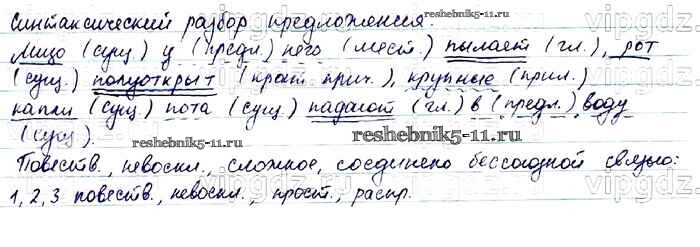 Синтаксический разбор предложения.
reshebnik5-11.ru
vipgdz
Лицо (сущ.) у (предл.) него (мест.) пылает (гл.), рот
(сущ.) полуоткрыт (крат. прич.), крупные (прил.)
капли (сущ.) пота (сущ.) падают (гл.) в (предл.) воду
(сущ.).
reshebnik5-11.ru
reshebnik5-11.ru
Повеств., невоскл., сложное, соединено бессоюзной связью:
1, 2, 3 повеств., невоскл., прост., распр.
vipgdz